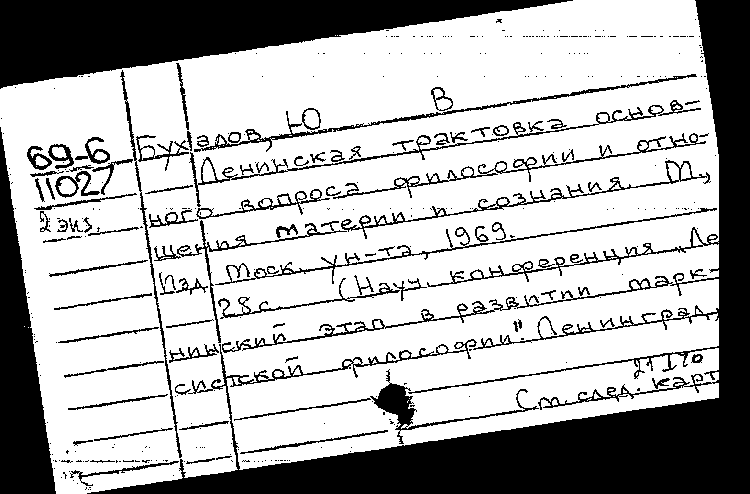 69-6
11027
2 экз.
Бухалов, Ю В
Ленинская трактовка основ-
ного вопроса философии и отно-
шения материи и сознания. М.,
Изд. Моск. ун-та, 1969.
28 с. (Науч. конференция „Ле
нинский этап в развитии марк-
систской философии". Ленинград,
21 I 70
См. след. карт